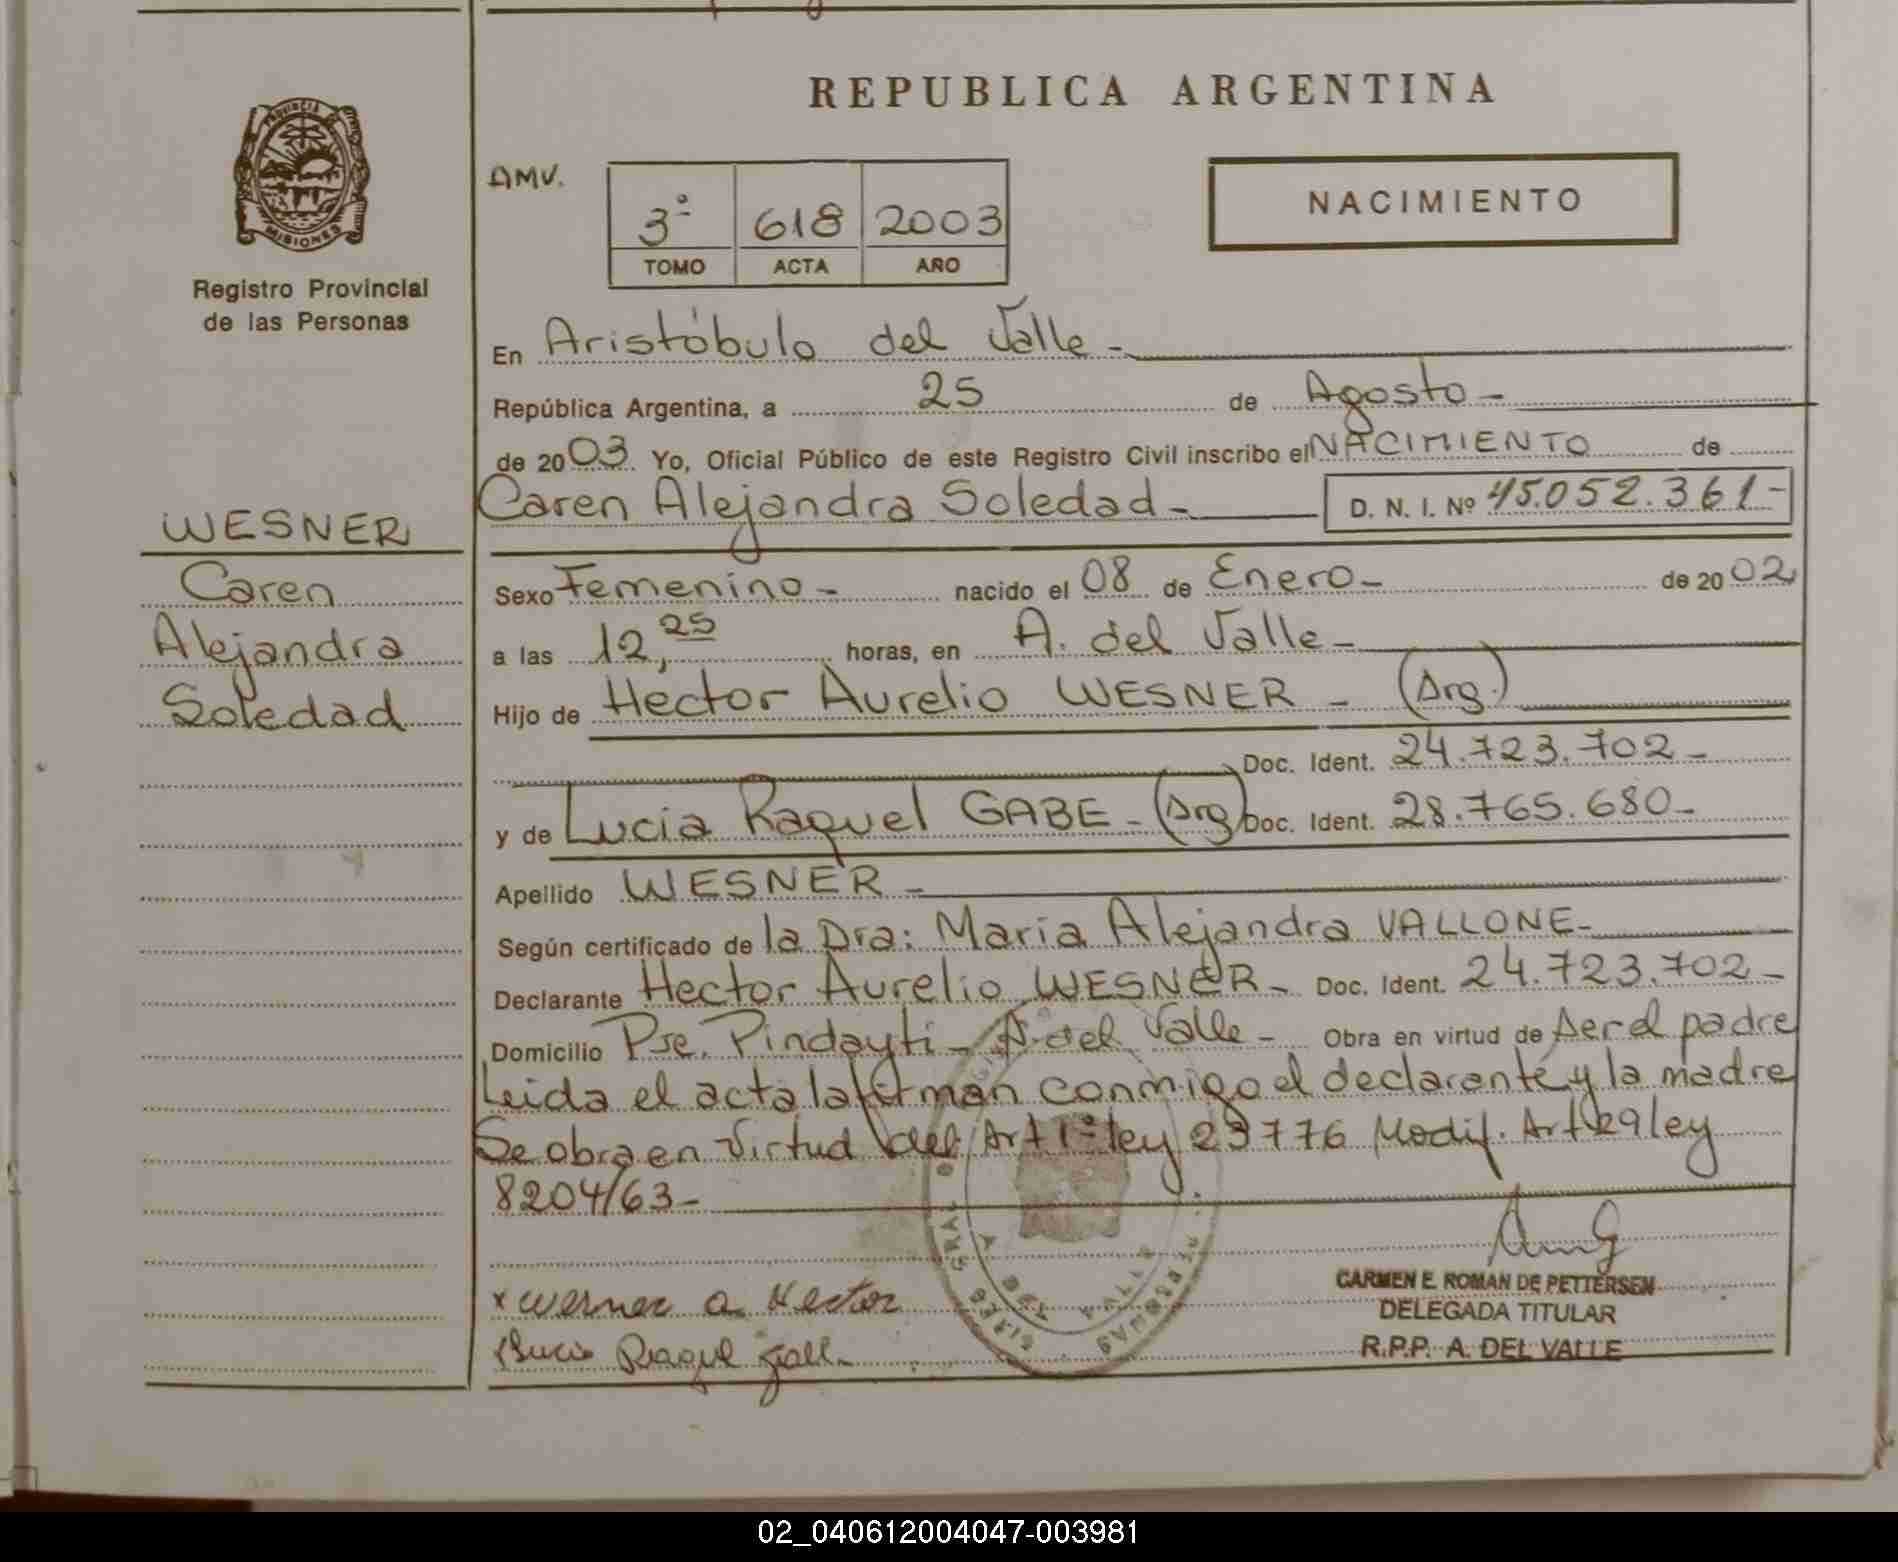 REPUBLICA ARGENTINA
PROVINCIA DE
MISIONES
Registro Provincial
de las Personas
AMV.
3º 618 2003
TOMO ACTA AÑO
NACIMIENTO
En Aristóbulo del Valle -
República Argentina, a 25 de Agosto -
de 2003. Yo, Oficial Público de este Registro Civil inscribo el NACIMIENTO de
Caren Alejandra Soledad - D. N. I. Nº 45.052.361-
WESNER
Caren
Alejandra
Soledad
Sexo Femenino - nacido el 08 de Enero - de 2002
a las 12,25 horas, en A. del Valle -
Hijo de Hector Aurelio WESNER - (Arg.)
Doc. Ident. 24.723.702 -
y de Lucia Raquel GABE - (Arg) Doc. Ident. 28.765.680 -
Apellido WESNER -
Según certificado de la Dra: Maria Alejandra VALLONE -
Declarante Hector Aurelio WESNER - Doc. Ident. 24.723.702 -
Domicilio Pje. Pindayti - A. del Valle - Obra en virtud de ser el padre
Leida el acta la firman conmigo el declarante y la madre
Se obra en virtud del Art 1º ley 23776 Modif. Art 29 ley
8204/63 -
x Wesner A. Hector
Lucia Raquel
CARMEN E. ROMAN DE PETTERSEN
DELEGADA TITULAR
R.P.P. A. DEL VALLE
A DEL VALLE
02_040612004047-003981